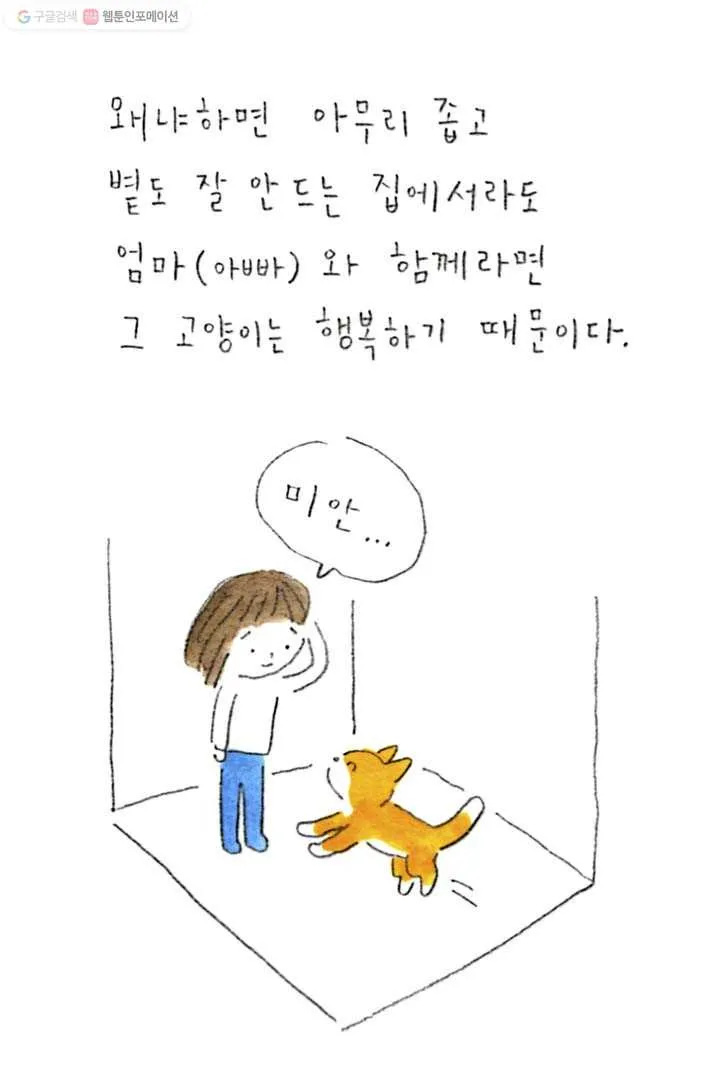 구글검색 웹툰인포메이션
왜냐하면 아무리 좁고
볕도 잘 안 드는 집에서라도
엄마(아빠)와 함께라면
그 고양이는 행복하기 때문이다.
미안...